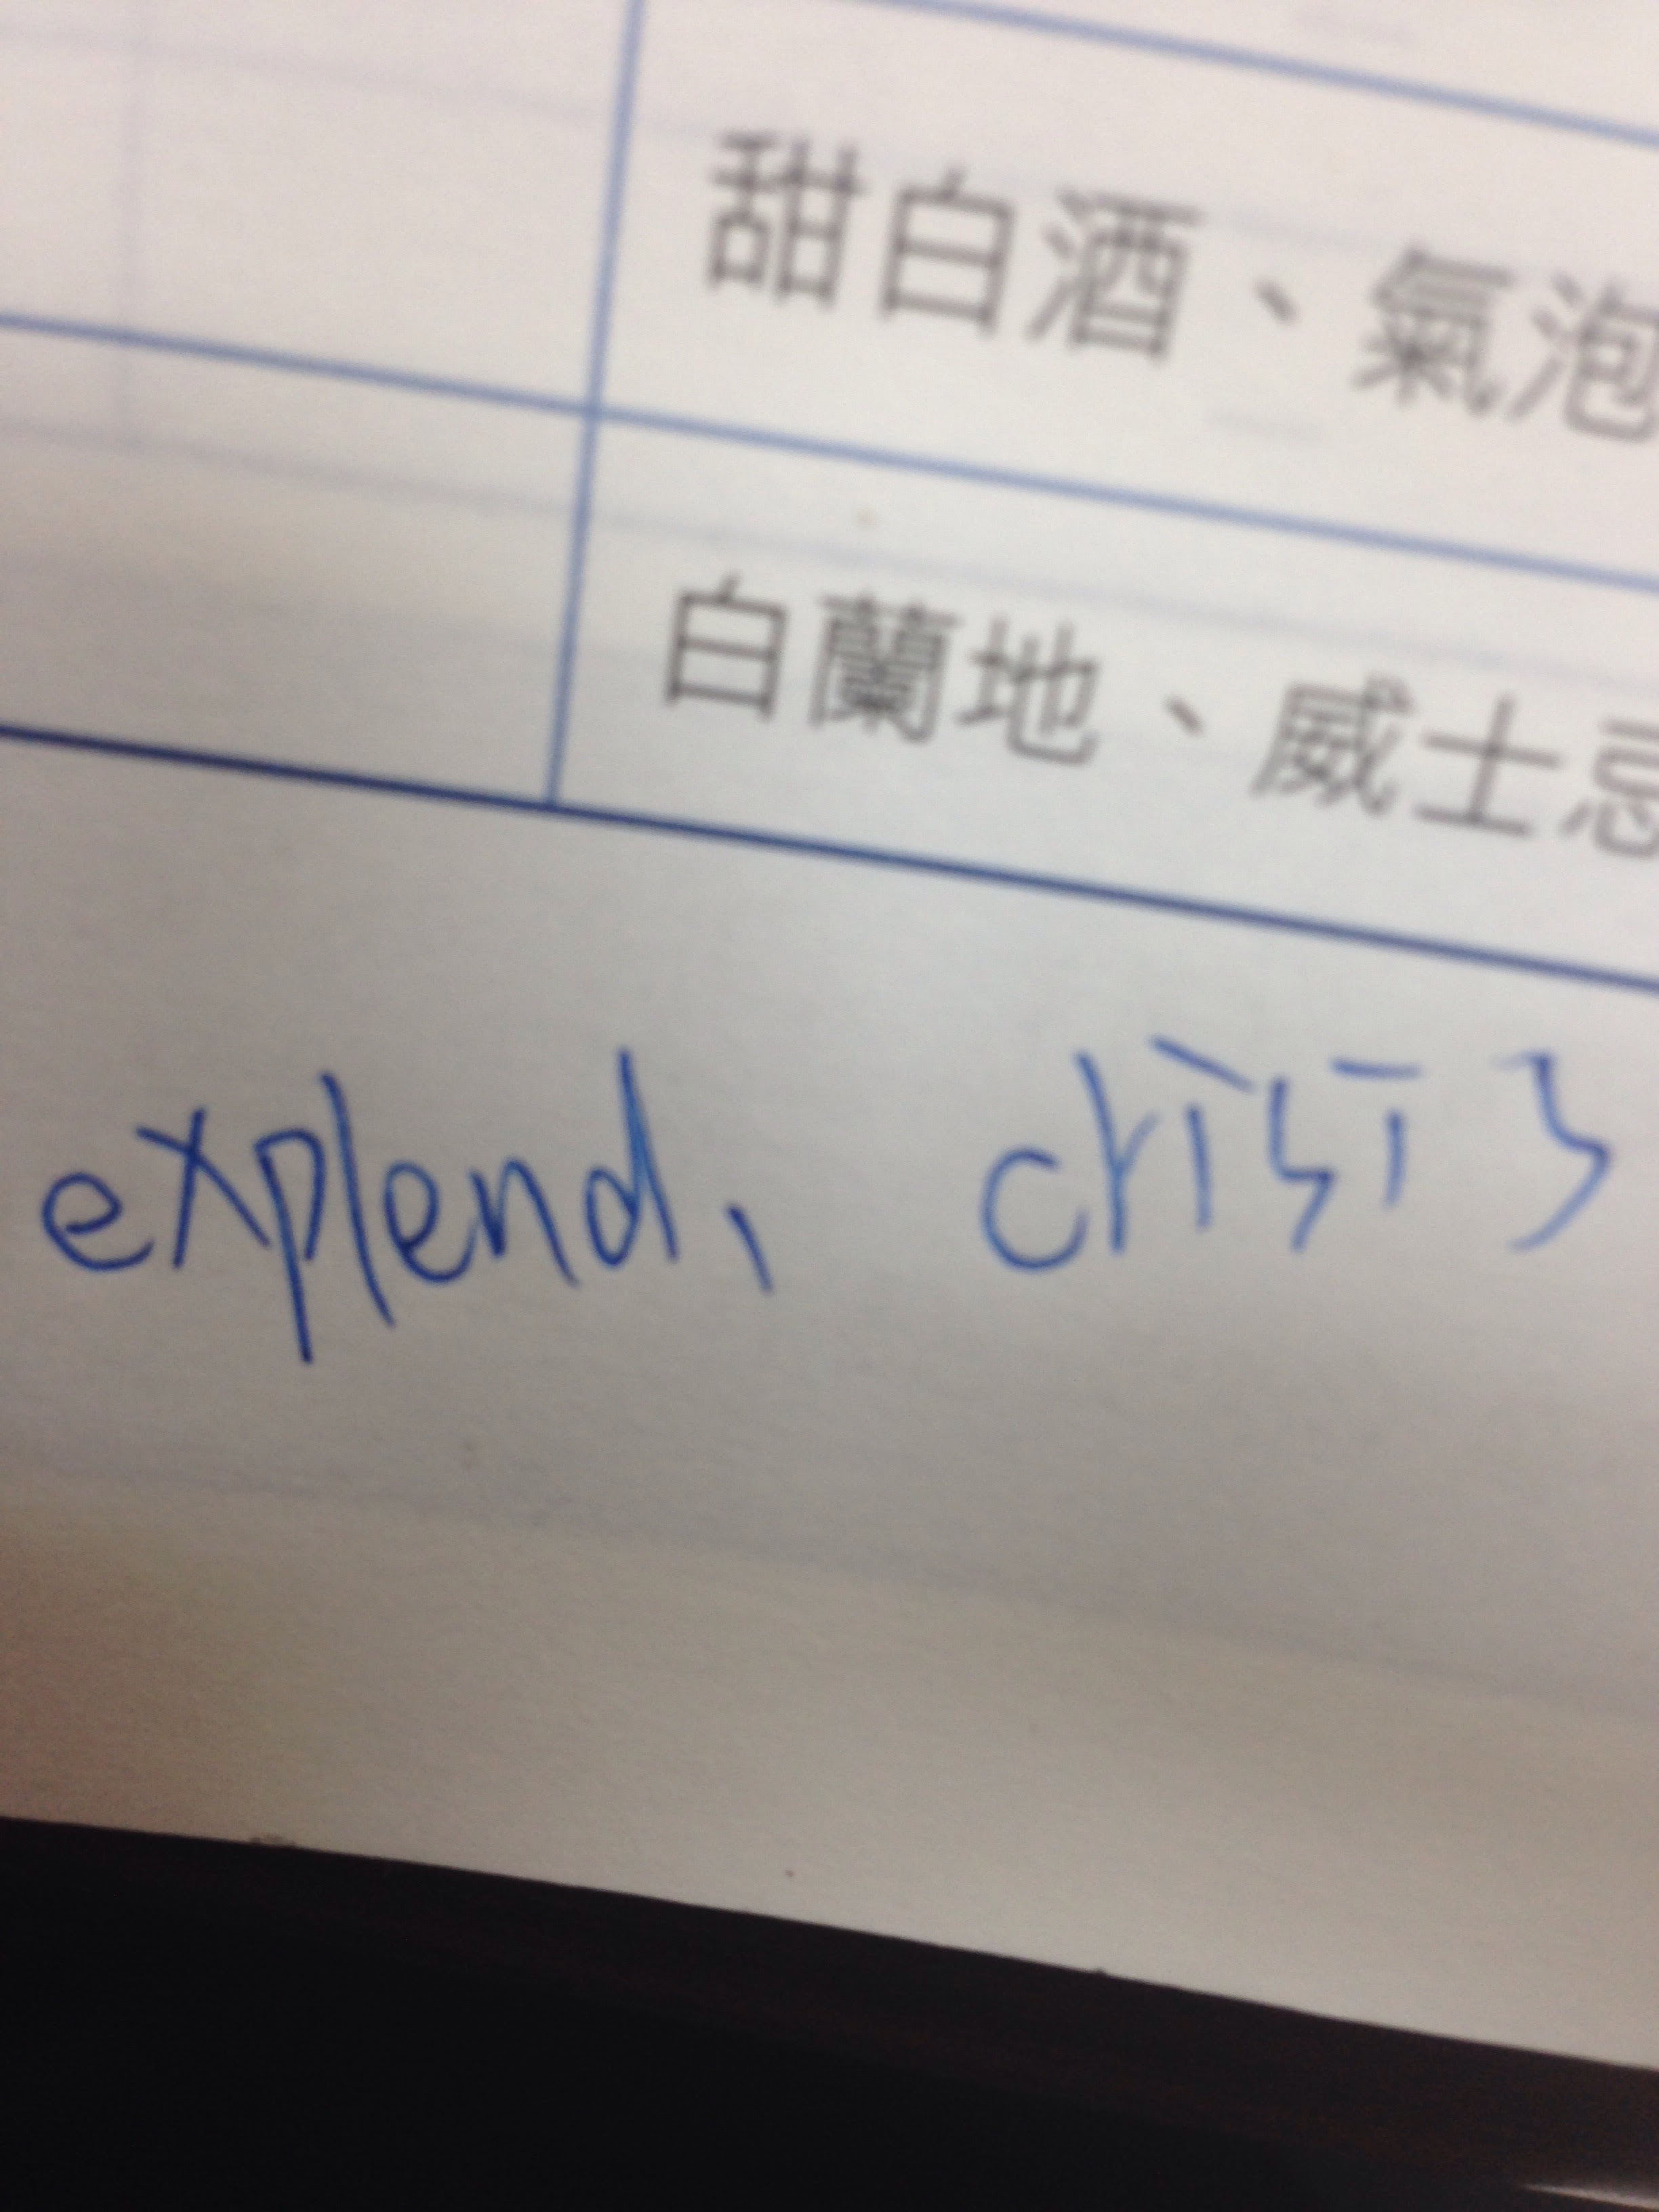 甜白酒、氣泡
白蘭地、威士忌
explend、 crisis